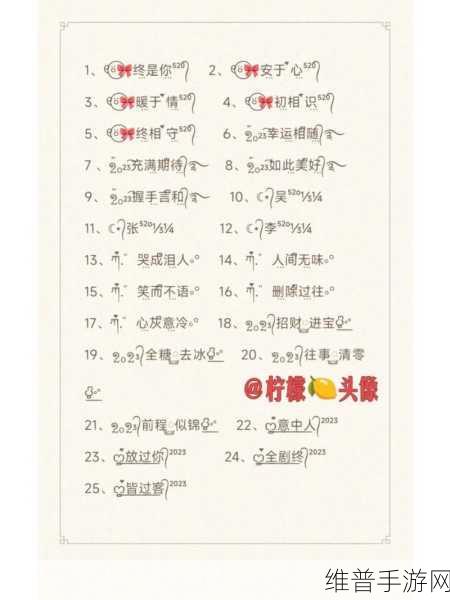 1、ღ🎀终是你⁵²⁰ 2、ღ🎀安于心⁵²⁰
3、ღ🎀暖于情⁵²⁰ 4、ღ🎀初相识⁵²⁰
5、ღ🎀终相守⁵²⁰ 6、2023幸运相随
7、2023充满期待 8、2023如此美好
9、2023握手言和 10、☾吴⁵²⁰⅓¼
11、☾张⁵²⁰⅓¼ 12、☾李⁵²⁰⅓¼
13、哭成泪人 14、人间无味
15、笑而不语 16、删除过往
17、心灰意冷 18、2023招财进宝
19、2023全糖去冰 20、2023往事清零
@柠檬🍋头像
21、2023前程似锦 22、意中人²⁰²³
23、放过你²⁰²³ 24、全剧终²⁰²³
25、皆过客²⁰²³
维普手游网